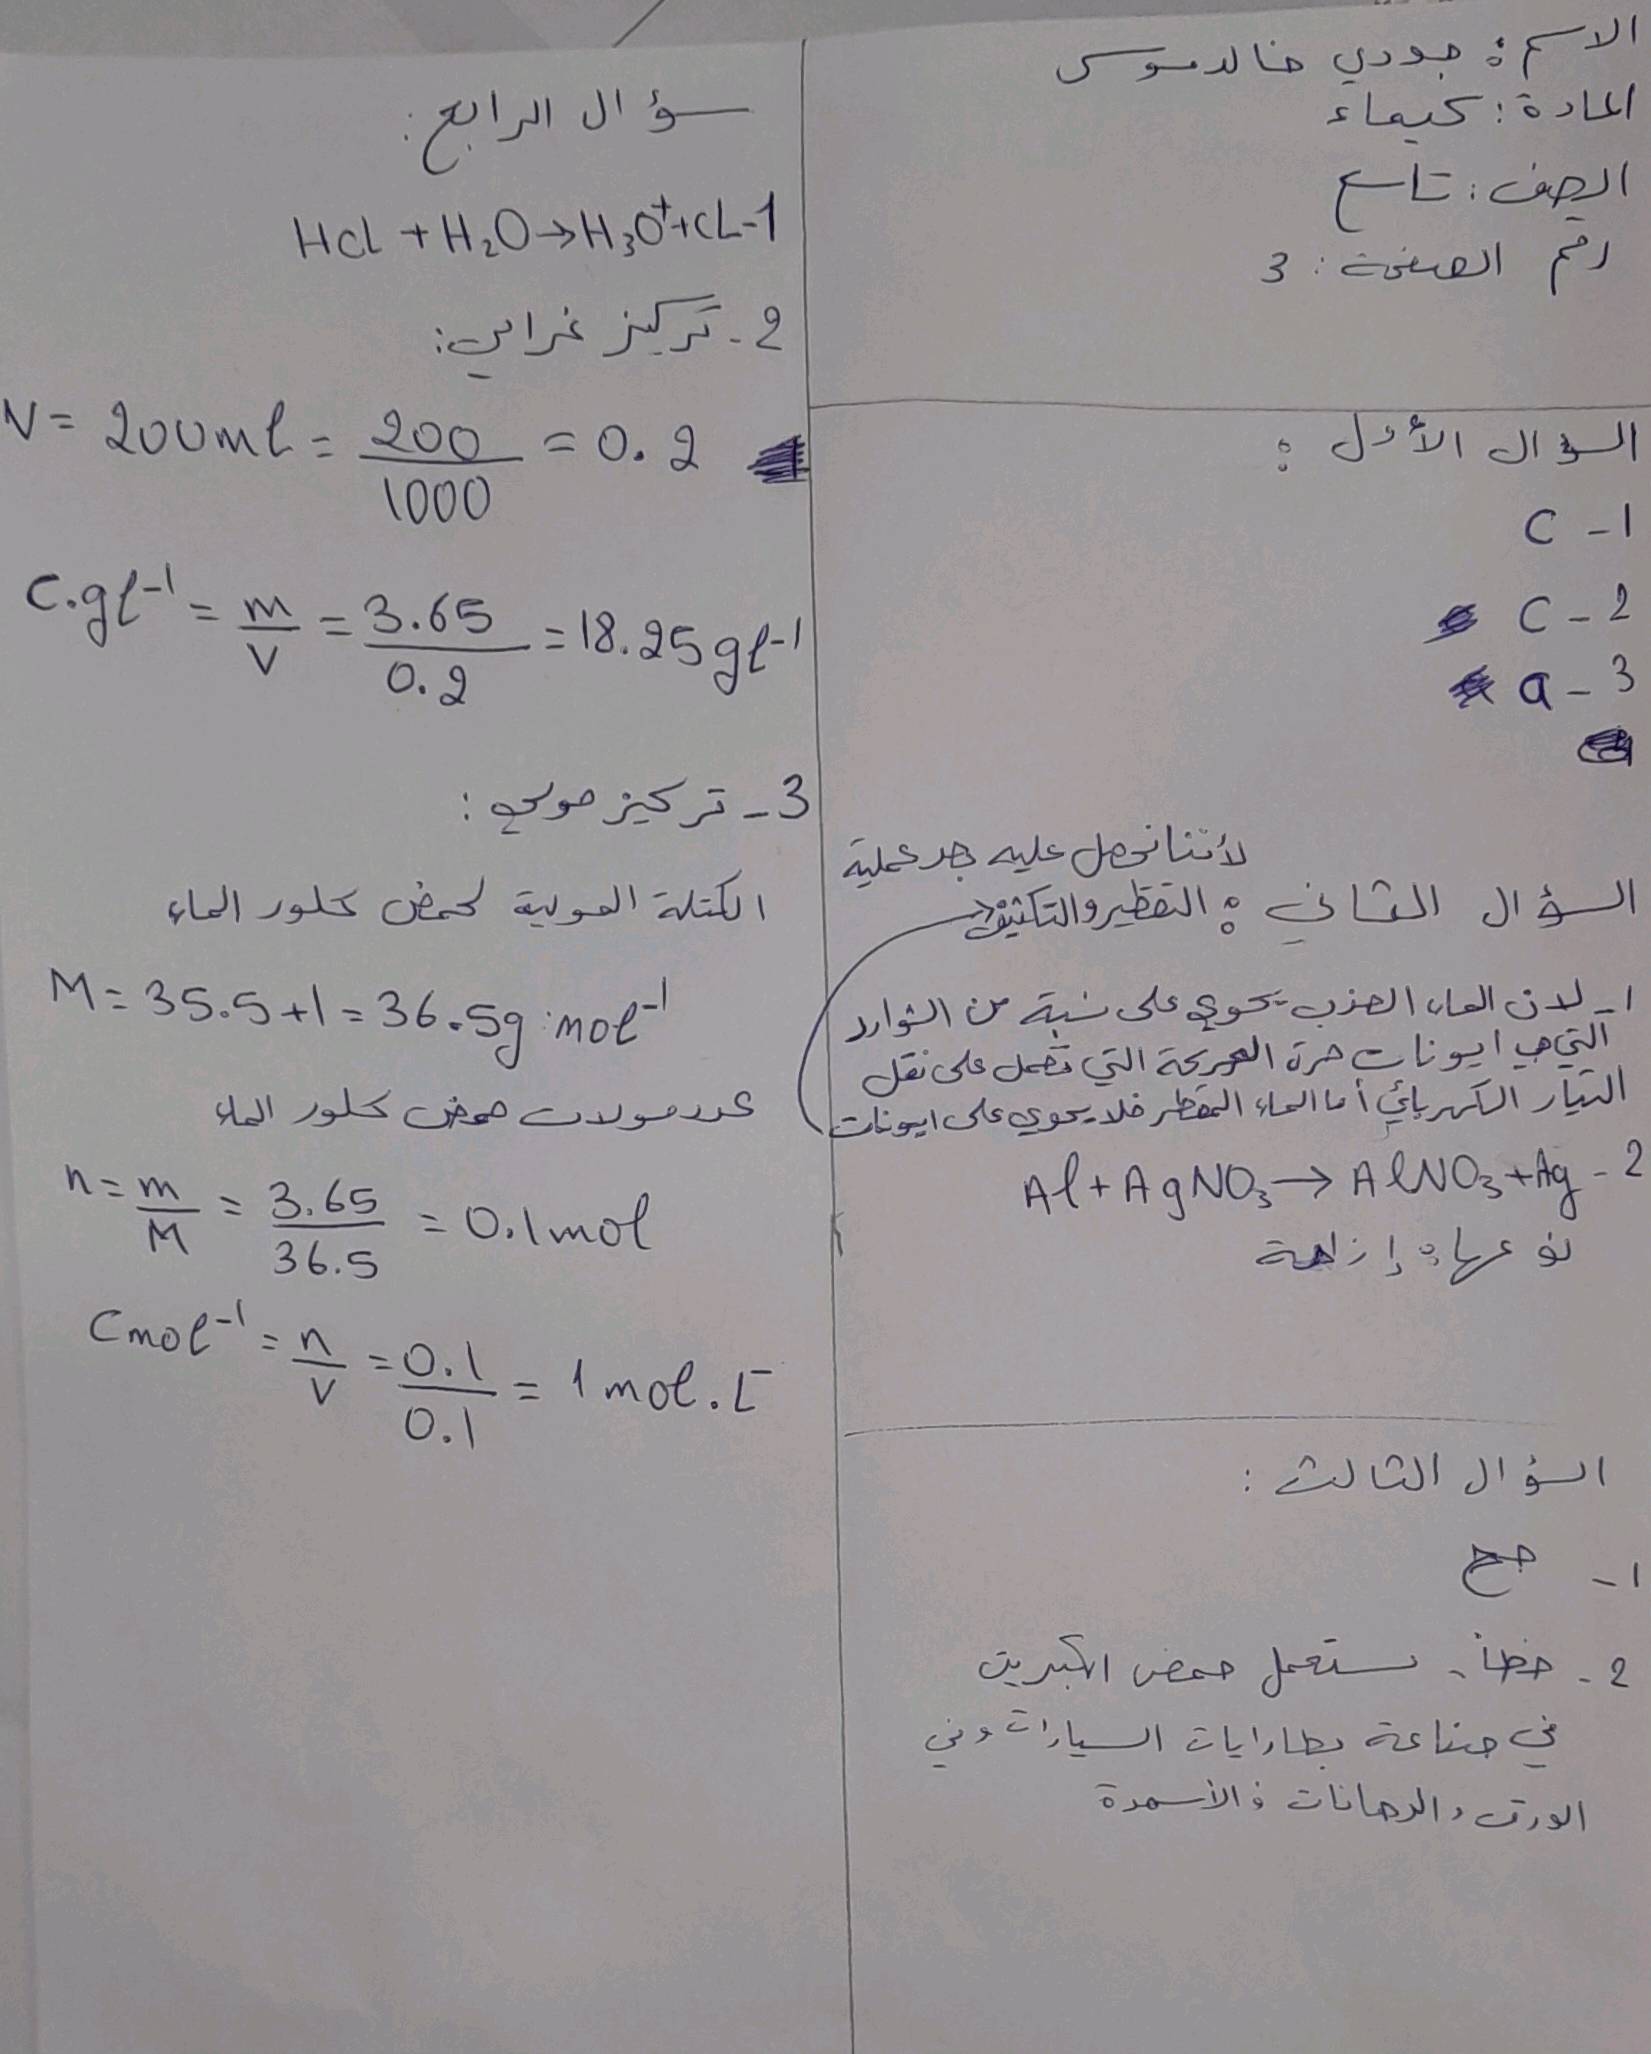 الاسم: جودي خالد موسى
المادة: كيماء
الصف: تاسع
رقم الصفحة: 3
السؤال الأول:
1- C
2- C
3- a
لأننا نحصل عليه بعد عملية
السؤال الثاني: التقطير والتكثيف
1- لان الماء العذب يحوي على نسبة من الشوارد
التي هي ايونات حرة الحركة التي تعمل على نقل
التيار الكهربائي أما الماء المقطر فلا يحوي على ايونات
2- Al + AgNO₃ → AlNO₃ + Ag
نوعها: إزاحة
السؤال الثالث:
1- صح
2- خطأ، ستعمل حمض الكبريت
في صناعة بطارايات السيارات وفي
الورق والدهانات و الأسمدة
سؤال الرابع:
1- HCL + H₂O → H₃O⁺ + CL
2- تركيز غرامي:
V = 200ml = 200/1000 = 0.2
C.gl⁻¹ = m/v = 3.65/0.2 = 18.25 gl⁻¹
3- تركيز مولي:
الكتلة المولية لحمض كلور الماء
M = 35.5 + 1 = 36.5g.mol⁻¹
عدد مولات حمض كلور الماء
n = m/M = 3.65/36.5 = 0.1 mol
Cmol⁻¹ = n/v = 0.1/0.1 = 1 mol.L⁻